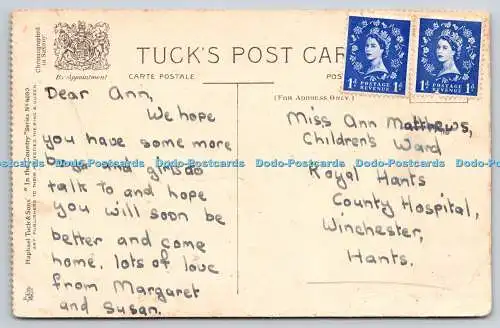 TUCK'S POST CARD
CARTE POSTALE
(FOR ADDRESS ONLY.)
By Appointment
Chromographed in Saxony
Raphael Tuck & Sons' "In the Country" Series Nº
ART PUBLISHERS TO THEIR MAJESTIES THE KING & QUEEN
POSTAGE
REVENUE
1D
POSTAGE
REVENUE
1D
Dear Ann,
We hope
you have some more
boys and girls to
talk to and hope
you will soon be
better and come
home, lots of love
from Margaret
and Susan.
Miss Ann Matthews,
Children's Ward
Royal Hants
County Hospital,
Winchester,
Hants.
Dodo-Postcards Dodo-Postcards Dodo-Postcards Dodo-Postcards Dodo-Postcards Dodo-Postcards